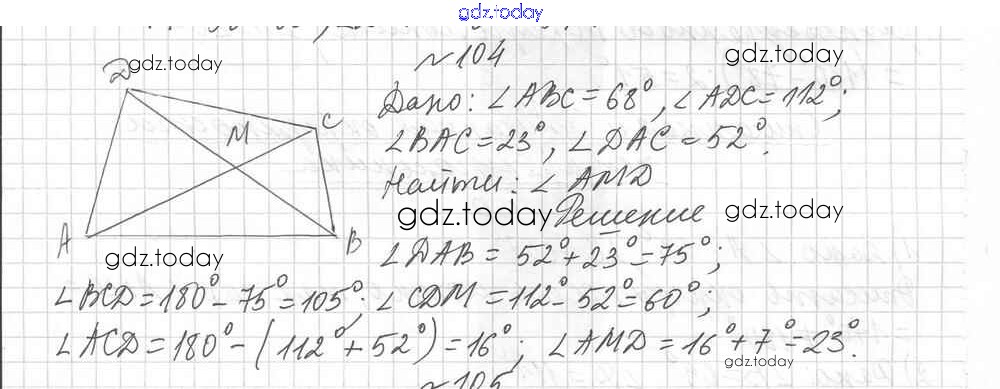 gdz.today
№104
gdz.today
gdz.today
D
C
M
A
B
Дано: ∠ABC = 68°, ∠ADC = 112°;
∠BAC = 23°, ∠DAC = 52°.
Найти: ∠AMD
gdz.today
Решение
gdz.today
gdz.today
∠DAB = 52° + 23° = 75°;
∠BCD = 180° - 75° = 105°; ∠CDM = 112° - 52° = 60°;
∠ACD = 180° - (112° + 52°) = 16°; ∠AMD = 16° + 7° = 23°.
gdz.today
№105